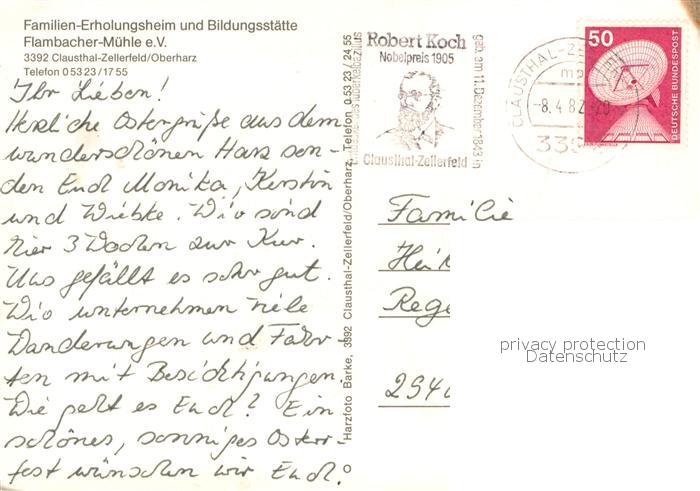 Familien-Erholungsheim und Bildungsstätte
Flambacher-Mühle e.V.
3392 Clausthal-Zellerfeld/Oberharz
Telefon 0 53 23 / 17 55
Ihr Lieben!
Herzliche Ostergrüße aus dem
wunderschönen Harz sen-
den Euch Monika, Kerstin
und Wiebke. Wir sind
hier 3 Wochen zur Kur.
Uns gefällt es sehr gut.
Wir unternehmen viele
Wanderungen und Fahr-
ten mit Besichtigungen.
Wie geht es Euch? Ein
schönes, sonniges Oster-
fest wünschen wir Euch.
Harzfoto Barke, 3392 Clausthal-Zellerfeld/Oberharz, Telefon 0 53 23 / 24 55
Robert Koch
Nobelpreis 1905
geb. am 11. Dezember 1843 in
Clausthal-Zellerfeld
CLAUSTHAL-ZE
-8.4.82
50
DEUTSCHE BUNDESPOST
Familie
Rege
privacy protection
Datenschutz